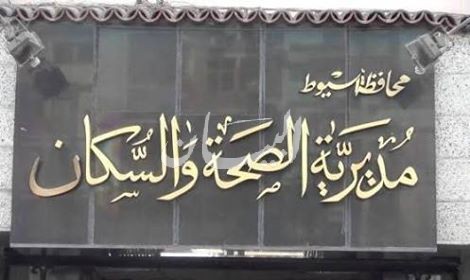 محافظة أسيوط
مُديرية الصحة والسُكان